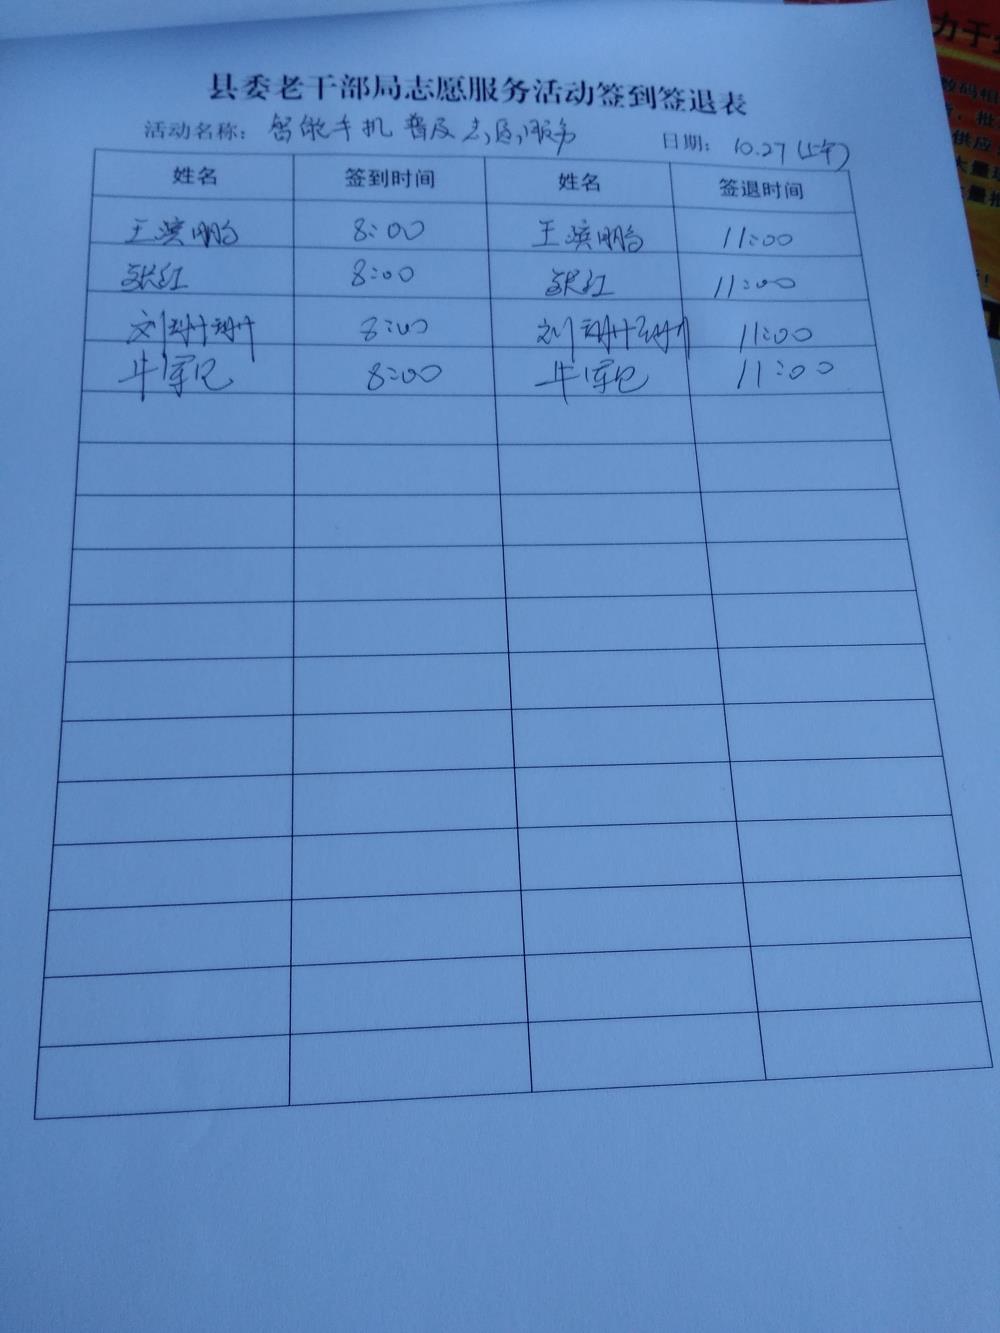 县委老干部局志愿服务活动签到签退表
活动名称：智能手机普及志愿服务 日期：10.27(上午)
姓名 签到时间 姓名 签退时间
王滨鹏 8:00 王滨鹏 11:00
张红 8:00 张红 11:00
刘珊珊 8:00 刘珊珊 11:00
牛军 8:00 牛军 11:00
力于
数码相
供应
大量
量批